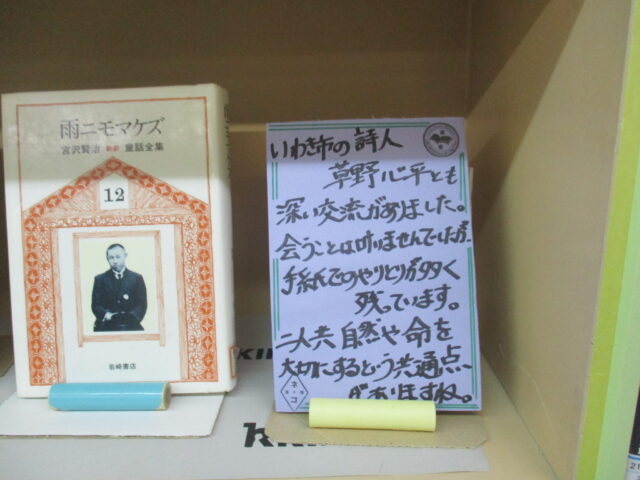 雨ニモマケズ
宮沢賢治 新版 童話全集
12
岩崎書店
いわき市の詩人
草野心平とも
深い交流がありました。
会うことは叶いませんでしたが、
手紙でのやりとりが多く
残っています。
二人共自然や命を
大切にするという共通点
がありますね。
ネコ